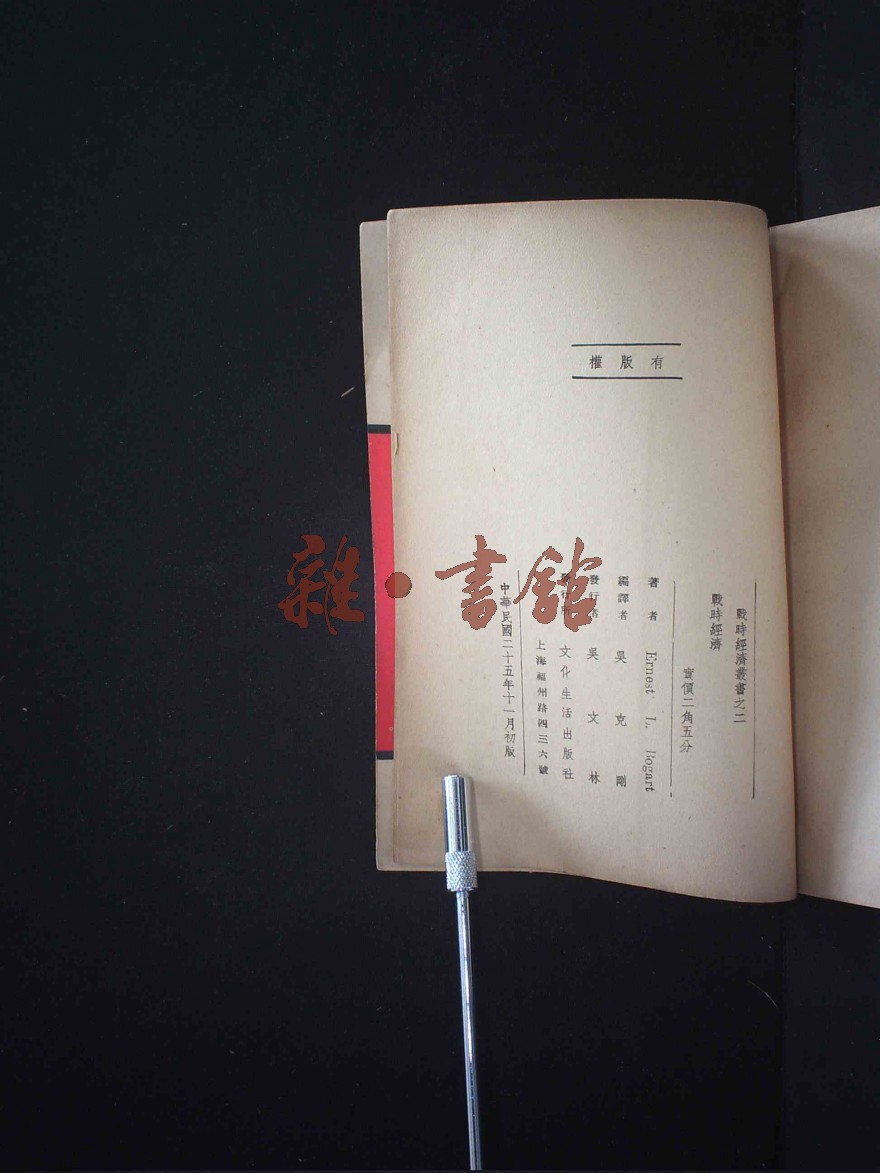 有版權
戰時經濟叢書之二
戰時經濟
實價二角五分
著者 Ernest L. Bogart
編譯者 吳克剛
發行者 吳文林
發行所 文化生活出版社
上海福州路四三六號
中華民國二十五年十一月初版
雜·書館